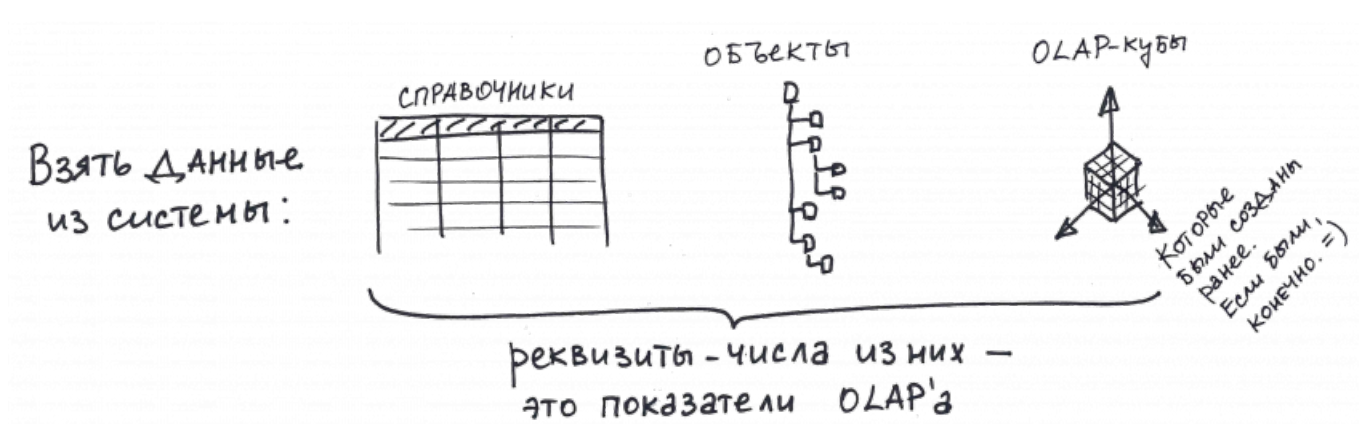 Взять данные
из системы:
СПРАВОЧНИКИ
ОБЪЕКТЫ
OLAP-КУБЫ
Которые
были созданы
ранее.
Если были,
конечно. =)
реквизиты - числа из них -
это показатели OLAP'а